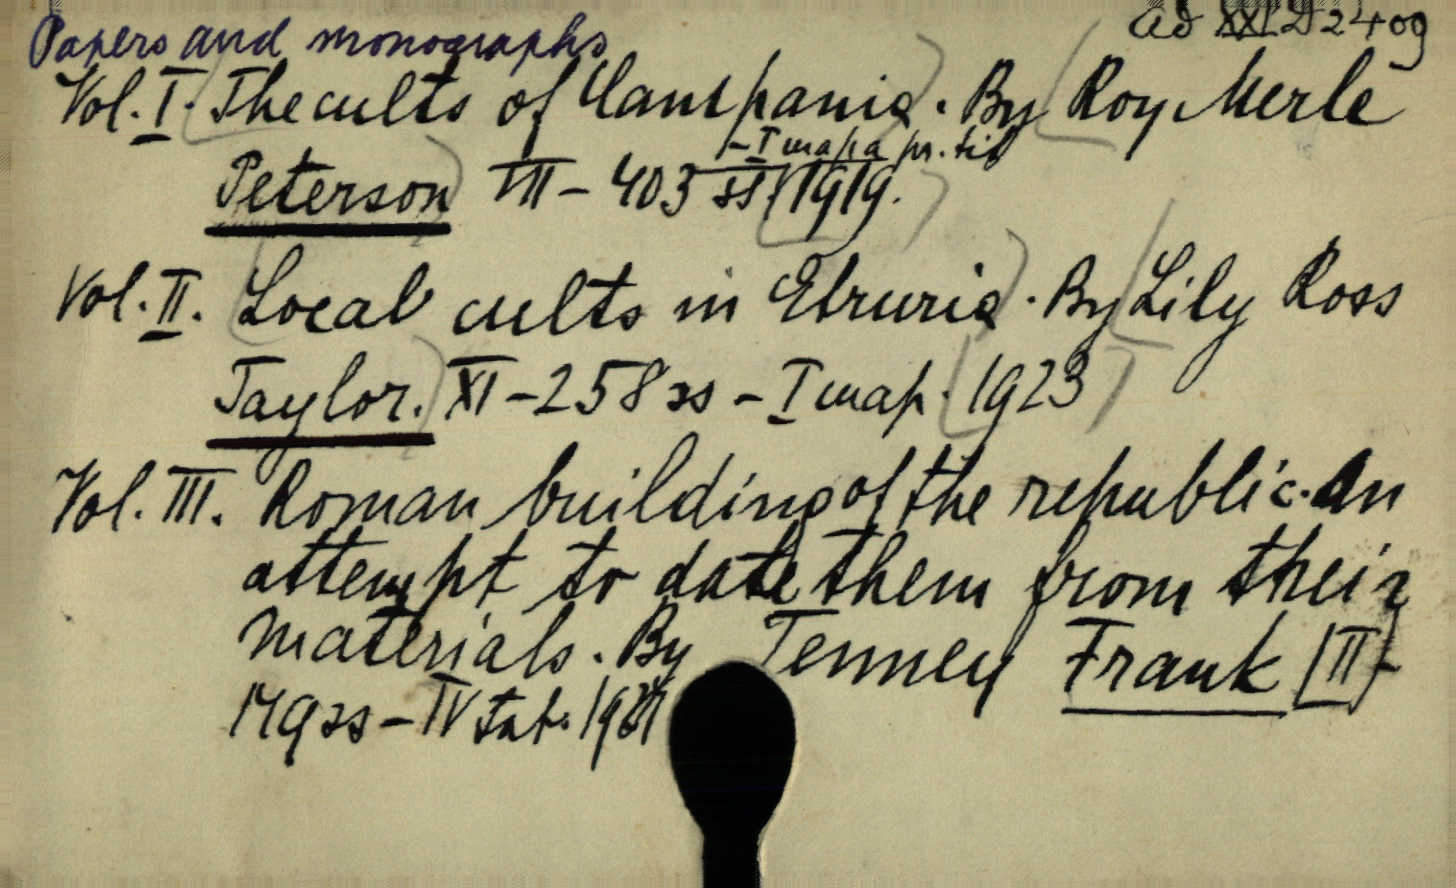 Papers and monographs
ad XXI D 2409
Vol. I. The cults of Campania. By Roy Merle
– I mapa pr. tit
Peterson VII – 403 ss. 1919.
Vol. II. Local cults in Etruria. By Lily Ross
Taylor. XI – 258 ss – I map. 1923
Vol. III. Roman building of the republic. An
attempt to date them from their
materials. By Tenney Frank [II]-
149 ss – IV tab.